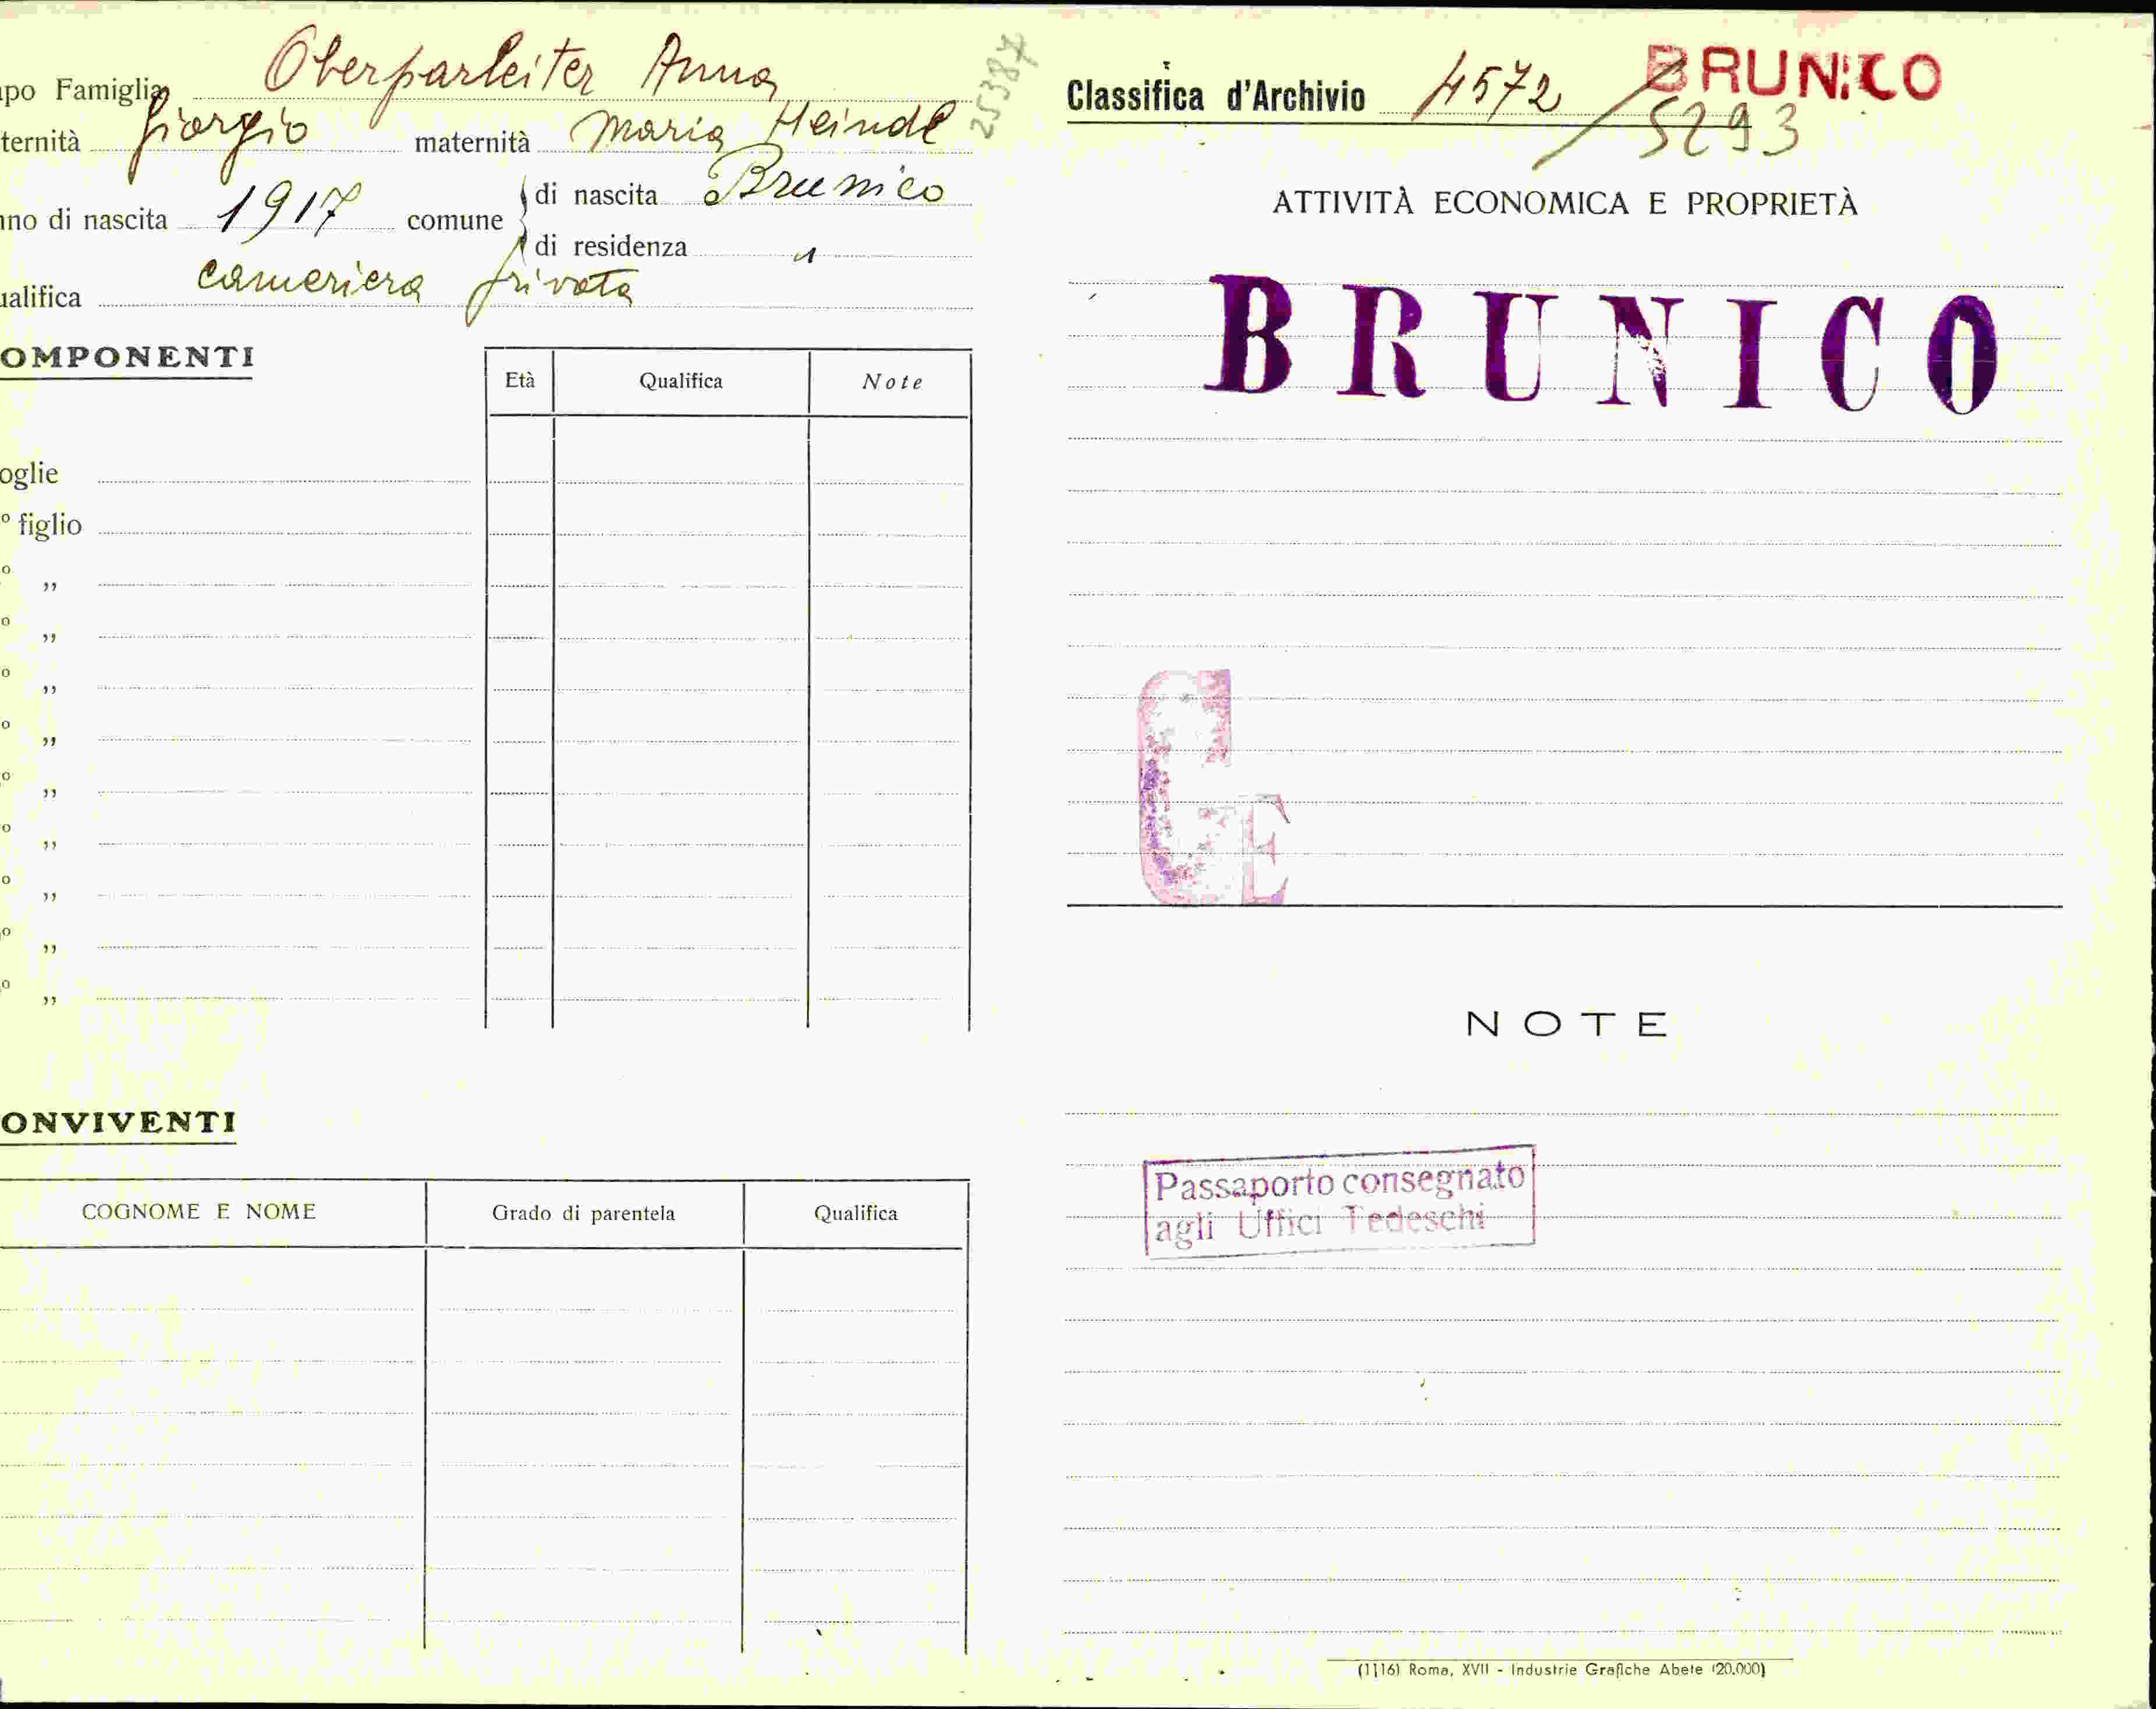 apo Famiglia Oberparleiter Anna
ternità Giorgio maternità Maria Heindl
nno di nascita 1917 comune di nascita Brunico
di residenza "
ualifica cameriera privata
25387
OMPONENTI
Età Qualifica Note
oglie
º figlio
º „
º „
º „
º „
º „
º „
º „
º „
º „
ONVIVENTI
COGNOME E NOME Grado di parentela Qualifica
Classifica d'Archivio 4572 / 5293
BRUNICO
ATTIVITÀ ECONOMICA E PROPRIETÀ
BRUNICO
GE
NOTE
Passaporto consegnato
agli Uffici Tedeschi
(1116) Roma, XVII - Industrie Grafiche Abete (20.000)